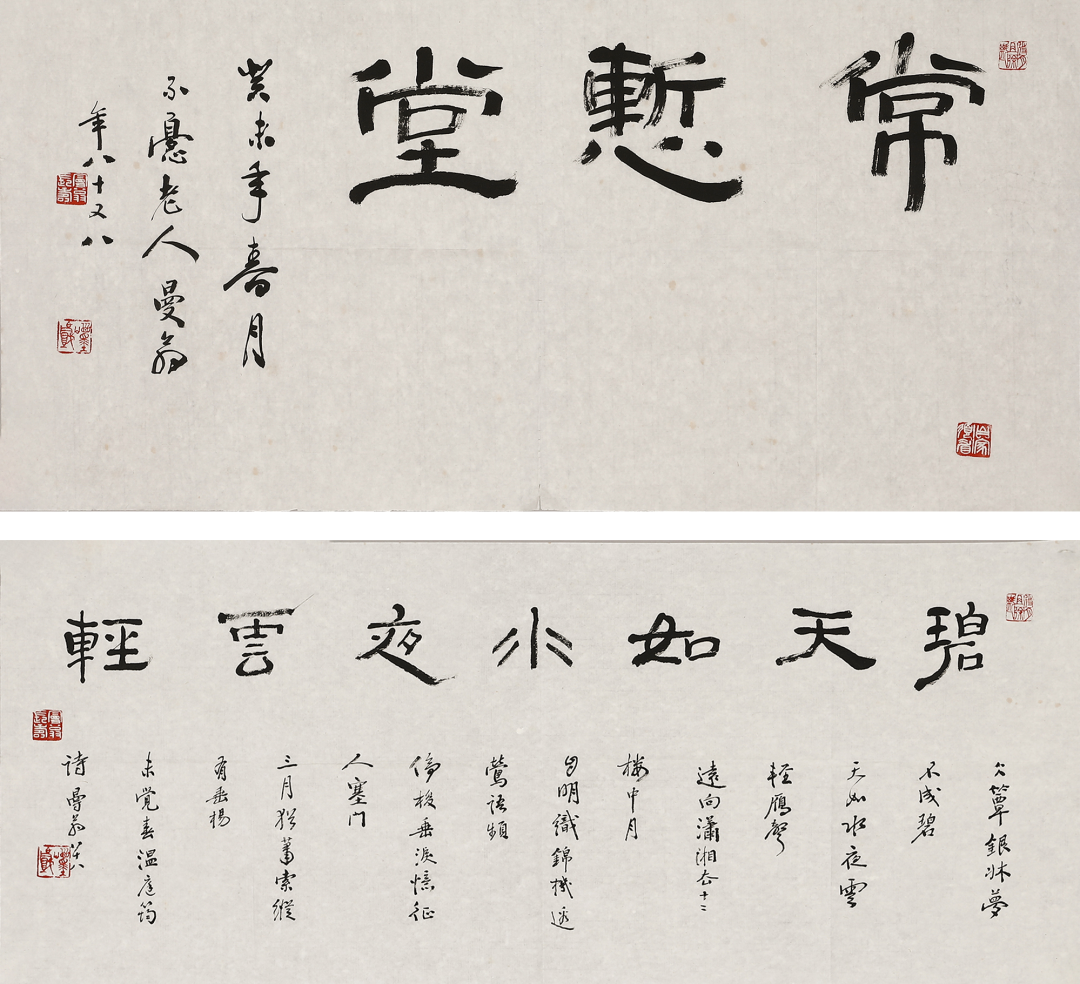 常慙堂
癸未年春月
不憂老人曼翁
年八十又八
碧天如水夜雲輕
冰簟銀牀夢
不成碧
天如水夜雲
輕鴈聲
遠向瀟湘去十二
樓中月
自明織錦機邊
鶯語頻
停梭垂淚憶征
人塞門
三月猶蕭索縱
有垂楊
未覺春溫庭筠
詩曼翁